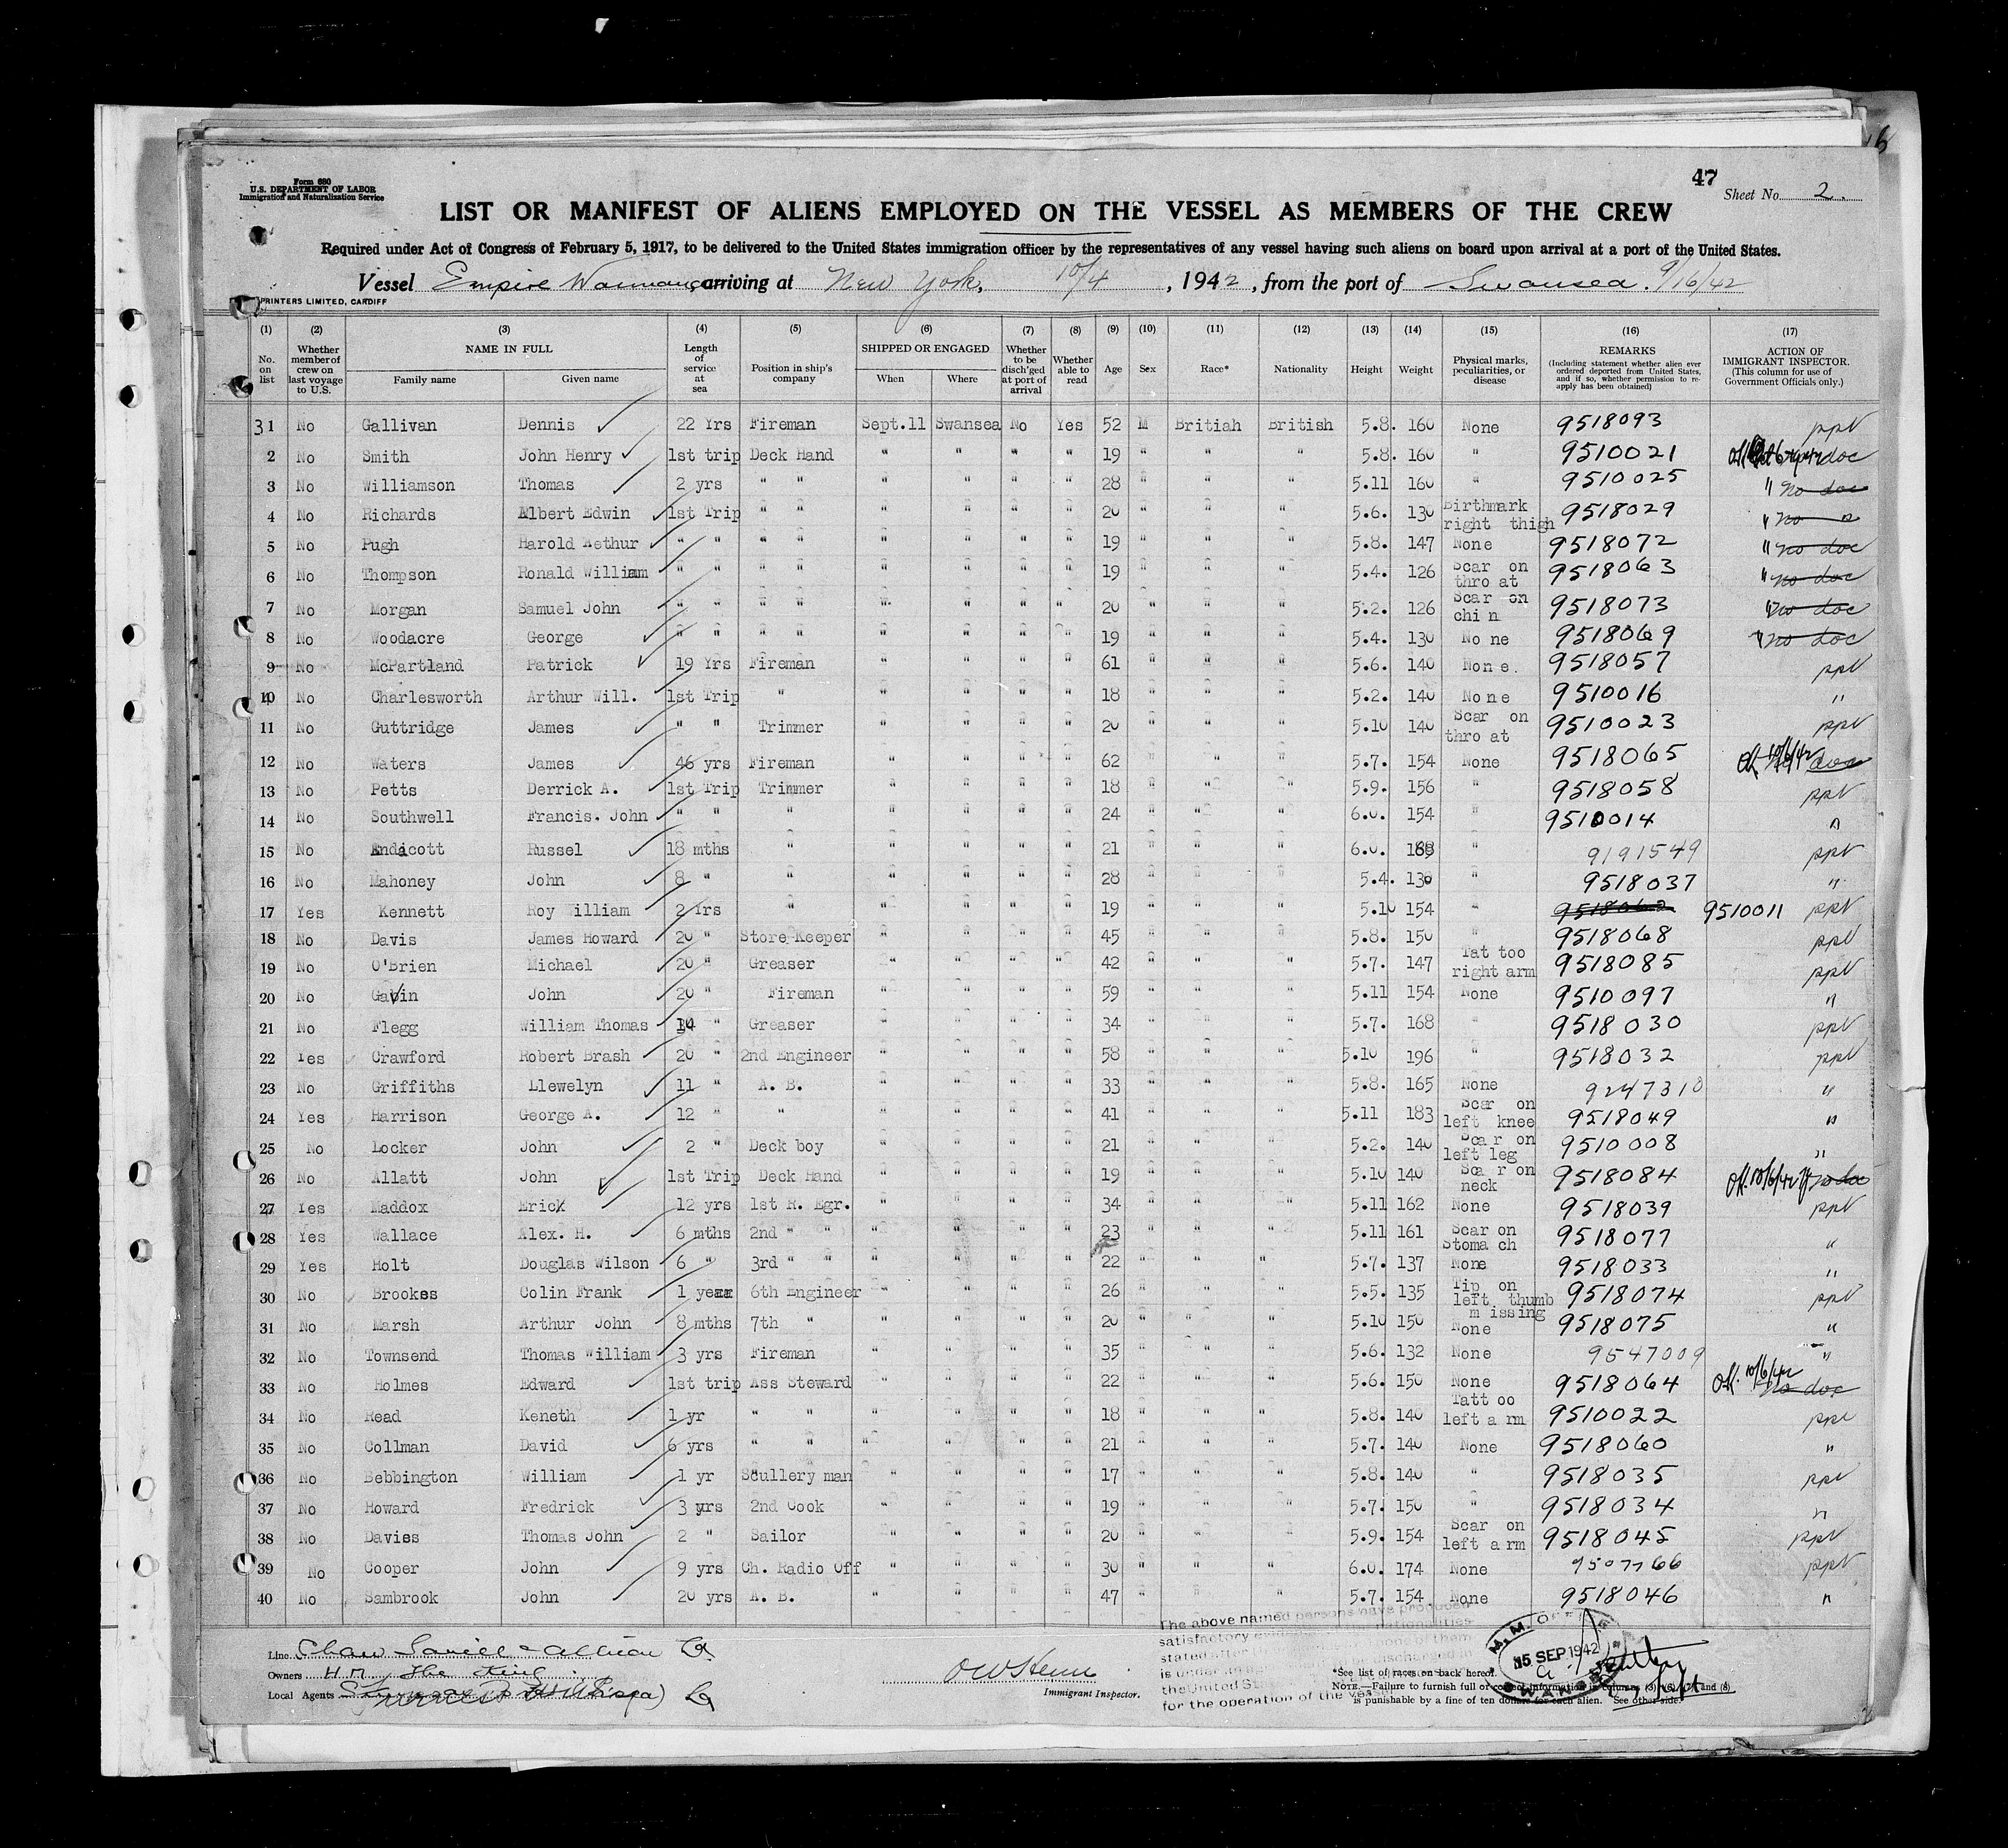 Form 680
U.S. DEPARTMENT OF LABOR
Immigration and Naturalization Service
47
Sheet No. 2.
LIST OR MANIFEST OF ALIENS EMPLOYED ON THE VESSEL AS MEMBERS OF THE CREW
Required under Act of Congress of February 5, 1917, to be delivered to the United States immigration officer by the representatives of any vessel having such aliens on board upon arrival at a port of the United States.
Vessel Empire arriving at New York, 10/4, 1942, from the port of Swansea. 9/16/42
PRINTERS LIMITED, CARDIFF
(1) (2) (3) (4) (5) (6) (7) (8) (9) (10) (11) (12) (13) (14) (15) (16) (17)
No. on list Whether member of crew on last voyage to U.S. NAME IN FULL Family name Given name Length of service at sea Position in ship's company SHIPPED OR ENGAGED When Where Whether to be disch'ged at port of arrival Whether able to read Age Sex Race* Nationality Height Weight Physical marks, peculiarities, or disease REMARKS (Including statement whether alien ever ordered deported from United States, and if so, whether permission to re-apply has been obtained) ACTION OF IMMIGRANT INSPECTOR. (This column for use of Government Officials only.)
31 No Gallivan Dennis 22 Yrs Fireman Sept.11 Swansea No Yes 52 M Britiah British 5.8. 160 None 9518093 ppt
2 No Smith John Henry 1st trip Deck Hand " " " " 19 " " " 5.8. 160 " 9510021 doc
3 No Williamson Thomas 2 yrs " " " " " " 28 " " " 5.11 160 " 9510025 " no doc
4 No Richards Albert Edwin 1st Trip " " " " " " 20 " " " 5.6. 130 Birthmark right thigh 9518029 " no "
5 No Pugh Harold Aethur " " " " " " " " 19 " " " 5.8. 147 None 9518072 " no doc
6 No Thompson Ronald William " " " " " " " " 19 " " " 5.4. 126 Scar on throat 9518063 " no doc
7 No Morgan Samuel John " " " " " " " " 20 " " " 5.2. 126 Scar on chin 9518073 " no doc
8 No Woodacre George " " " " " " " " 19 " " " 5.4. 130 None 9518069 " no doc
9 No McPartland Patrick 19 Yrs Fireman " " " " 61 " " " 5.6. 140 None. 9518057 ppt
10 No Charlesworth Arthur Will. 1st Trip " " " " " 18 " " " 5.2. 140 None 9510016 "
11 No Guttridge James " " Trimmer " " " " 20 " " " 5.10 140 Scar on throat 9510023 ppt
12 No Waters James 46 yrs Fireman " " " " 62 " " " 5.7. 154 None 9518065 Ok 10/6/42 doc
13 No Petts Derrick A. 1st Trip Trimmer " " " " 18 " " " 5.9. 156 " 9518058 ppt
14 No Southwell Francis. John " " " " " " " 24 " " " 6.0. 154 " 9510014 "
15 No Endacott Russel 18 mths " " " " " 21 " " " 6.0. 168 " 9191549 ppt
16 No Mahoney John 8 " " " " " " 28 " " " 5.4. 130 " 9518037 "
17 Yes Kennett Roy William 2 Yrs " " " " " 19 " " " 5.10 154 " 9518062 9510011 ppt
18 No Davis James Howard 20 " Store Keeper " " " " 45 " " " 5.8. 150 " 9518068 ppt
19 No O'Brien Michael 20 " Greaser " " " " 42 " " " 5.7. 147 Tattoo right arm 9518085 ppt
20 No Gavin John 20 " Fireman " " " " 59 " " " 5.11 154 None 9510097 "
21 No Flegg William Thomas 14 " Greaser " " " " 34 " " " 5.7. 168 " 9518030 ppt
22 Yes Crawford Robert Brash 20 " 2nd Engineer " " " " 58 " " " 5.10 196 " 9518032 ppt
23 No Griffiths Llewelyn 11 " A. B. " " " " 33 " " " 5.8. 165 None 9247318 "
24 Yes Harrison George A. 12 " " " " " " 41 " " " 5.11 183 Scar on left knee 9518049 "
25 No Locker John 2 " Deck boy " " " " 21 " " " 5.2. 140 Scar on left leg 9510008 "
26 No Allatt John 1st Trip Deck Hand " " " " 19 " " " 5.10 140 Scar on neck 9518084 Ok. 10/6/42 no doc
27 Yes Maddox Erick 12 yrs 1st R. Egr. " " " " 34 " " " 5.11 162 None 9518039 ppt
28 Yes Wallace Alex. H. 6 mths 2nd " " " " " " 23 " " " 5.11 161 Scar on Stomach 9518077 "
29 Yes Holt Douglas Wilson 6 " 3rd " " " " " " 22 " " " 5.7. 137 None 9518033 "
30 No Brookes Colin Frank 1 year 6th Engineer " " " " 26 " " " 5.5. 135 Tip on left thumb missing 9518074 ppt
31 No Marsh Arthur John 8 mths 7th " " " " " 20 " " " 5.10 150 None 9518075 "
32 No Townsend Thomas William 3 yrs Fireman " " " " 35 " " " 5.6. 132 None 9547009 "
33 No Holmes Edward 1st trip Ass Steward " " " " 22 " " " 5.6. 150 None 9518064 Ok. 10/6/42 no doc
34 No Read Keneth 1 yr " " " " " " 18 " " " 5.8. 140 Tattoo left arm 9510022 ppt
35 No Collman David 6 yrs " " " " " " 21 " " " 5.7. 140 None 9518060 "
36 No Bebbington William 1 yr Scullery man " " " " 17 " " " 5.8. 140 " 9518035 ppt
37 No Howard Fredrick 3 yrs 2nd Cook " " " " 19 " " " 5.7. 150 " 9518034 "
38 No Davies Thomas John 2 " Sailor " " " " 20 " " " 5.9. 154 Scar on left arm 9518045 ppt
39 No Cooper John 9 yrs Ch. Radio Off " " " " 30 " " " 6.0. 174 None 9507766 ppt
40 No Sambrook John 20 yrs A. B. " " " " 47 " " " 5.7. 154 None 9518046 "
Line Shaw Savill & Albion Co
Owners H M The King
Local Agents
Immigrant Inspector.
The above named persons have produced
satisfactory evidence
for the operation of the vessel
M. M. OFFICE
15 SEP 1942
SWANSEA
*See list of races on back hereof.
NOTE.—Failure to furnish full or correct information in columns (3) (6) (7) and (8)
is punishable by a fine of ten dollars for each alien. See other side.